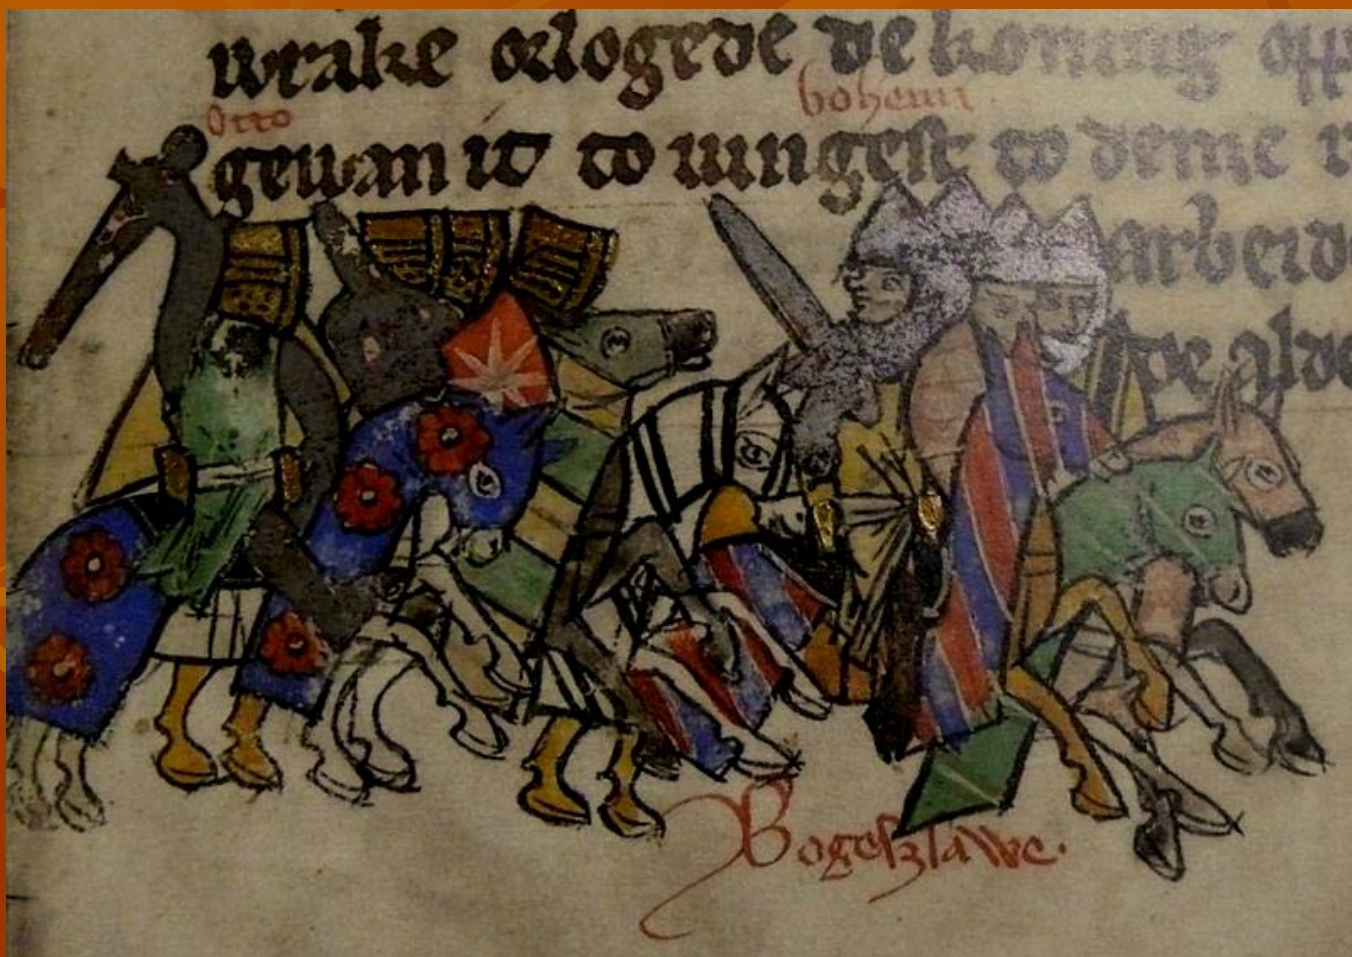 wrake orlogede de koning
Otto bohemi
gewan it to uuingest to deme
arbeide
de alde
Bogeszlawe.